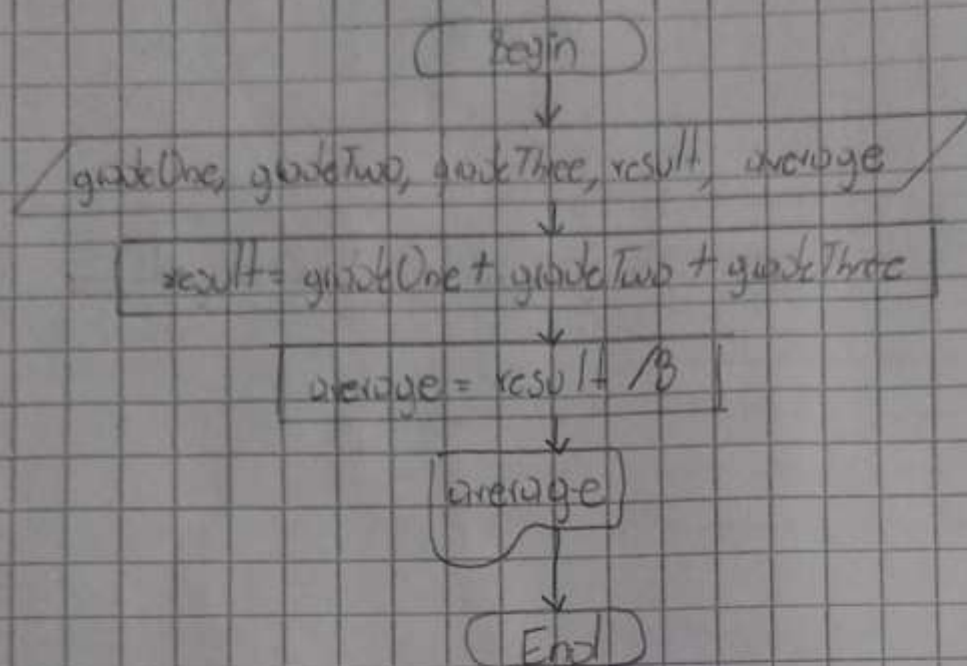 Begin
gradeOne, gradeTwo, gradeThree, result, average
result = gradeOne + gradeTwo + gradeThree
average = result /3
average
End